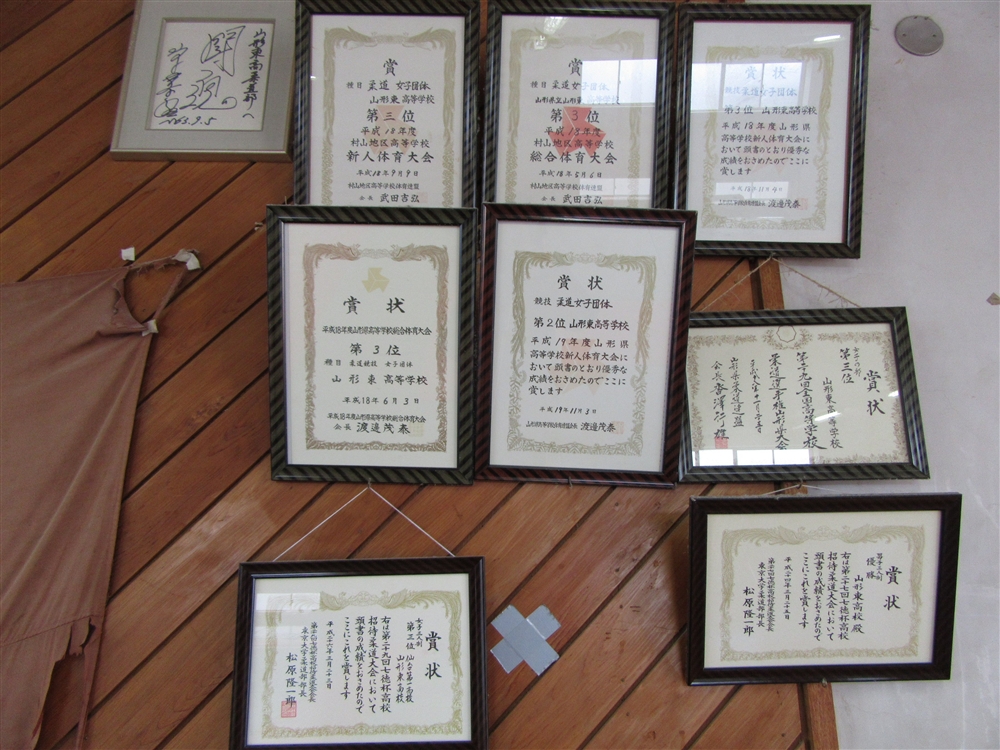 山形東高柔道部へ
闘魂
2003.9.5
賞
種目 柔道 女子団体
山形東高等学校
第三位
平成18年度
村山地区高等学校
新人体育大会
平成18年9月9日
村山地区高等学校体育連盟
会長 武田吉弘
賞
種目 柔道 女子団体
山形県立山形東高等学校
第3位
平成18年度
村山地区高等学校
総合体育大会
平成18年5月6日
村山地区高等学校体育連盟
会長 武田吉弘
賞状
競技 柔道 女子団体
第3位 山形東高等学校
平成18年度山形県
高等学校新人体育大会に
おいて頭書のとおり優秀な
成績をおさめたのでここに
賞します
渡邊茂泰
賞状
平成18年度山形県高等学校総合体育大会
第3位
種目 柔道競技 女子団体
山形東高等学校
平成18年6月3日
平成18年度山形県高等学校総合体育大会
会長 渡邊茂泰
賞状
競技 柔道 女子団体
第2位 山形東高等学校
平成19年度山形県
高等学校新人体育大会に
おいて頭書のとおり優秀な
成績をおさめたのでここに
賞します
平成19年11月3日
渡邊茂泰
賞状
第三位
山形東高等学校
第二十九回全国高等学校
柔道選手権山形県大会
山形県柔道連盟
会長
賞状
女子三人制
第三位 仙台第一高校
山形東高校
右は第二十九回七徳杯高校
招待柔道大会において
頭書の成績をおさめたので
ここにこれを賞します
平成二十六年三月二十三日
東京大学柔道部部長
松原隆一郎
賞状
男子三人制
優勝
山形東高校 殿
右は第二十七回七徳杯高校
招待柔道大会において
頭書の成績をおさめたので
ここにこれを賞します
平成二十四年三月二十五日
東京大学柔道部部長
松原隆一郎